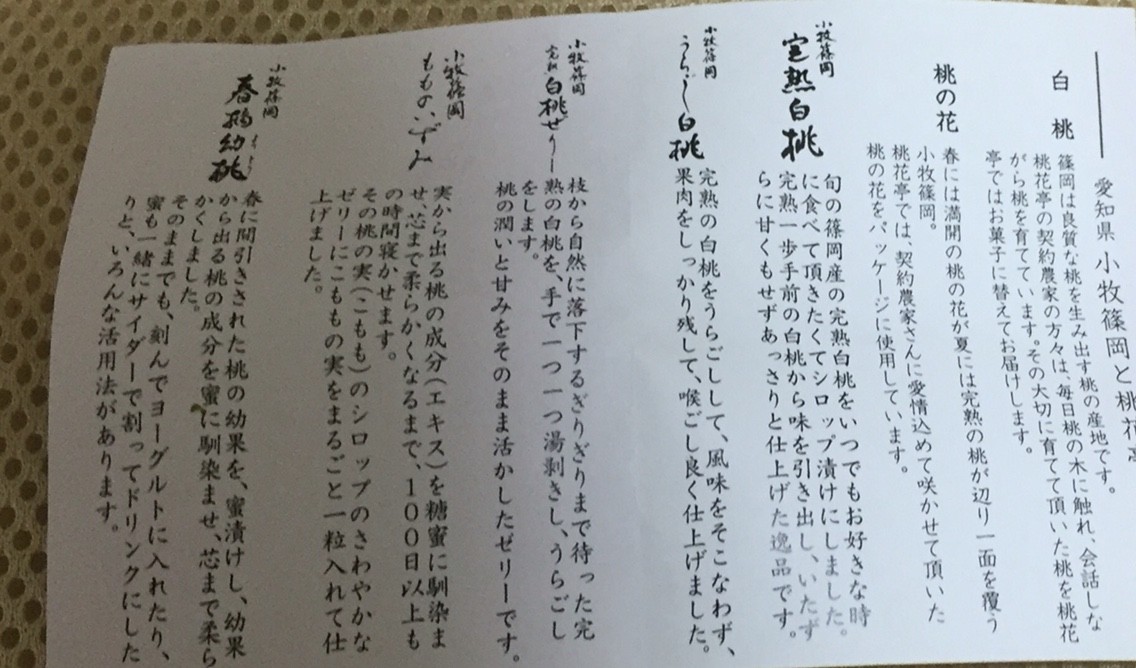 愛知県 小牧篠岡と桃花亭
白桃
篠岡は良質な桃を生み出す桃の産地です。
桃花亭の契約農家の方々は、毎日桃の木に触れ、会話しな
がら桃を育てています。その大切に育てて頂いた桃を桃花
亭ではお菓子に替えてお届けします。
桃の花
春には満開の桃の花が夏には完熟の桃が辺り一面を覆う
小牧篠岡。
桃花亭では、契約農家さんに愛情込めて咲かせて頂いた
桃の花をパッケージに使用しています。
小牧篠岡
完熟白桃
旬の篠岡産の完熟白桃をいつでもお好きな時
に食べて頂きたくてシロップ漬けにしました。
完熟一歩手前の白桃から味を引き出し、いたず
らに甘くもせずあっさりと仕上げた逸品です。
小牧篠岡
うらごし白桃
完熟の白桃をうらごしして、風味をそこなわず、
果肉をしっかり残して、喉ごし良く仕上げました。
小牧篠岡
完熟白桃ぜりー
枝から自然に落下するぎりぎりまで待った完
熟の白桃を、手で一つ一つ湯剥きし、うらごし
をします。
桃の潤いと甘みをそのまま活かしたゼリーです。
小牧篠岡
もものいずみ
実から出る桃の成分(エキス)を糖蜜に馴染ま
せ、芯まで柔らかくなるまで、100日以上も
の時間寝かせます。
その桃の実(こもも)のシロップのさわやかな
ゼリーにこももの実をまるごと一粒入れて仕
上げました。
小牧篠岡
春摘幼桃
春に間引きされた桃の幼果を、蜜漬けし、幼果
から出る桃の成分を蜜に馴染ませ、芯まで柔ら
かくしました。
そのままでも、刻んでヨーグルトに入れたり、
蜜も一緒にサイダーで割ってドリンクにした
りと、いろんな活用法があります。